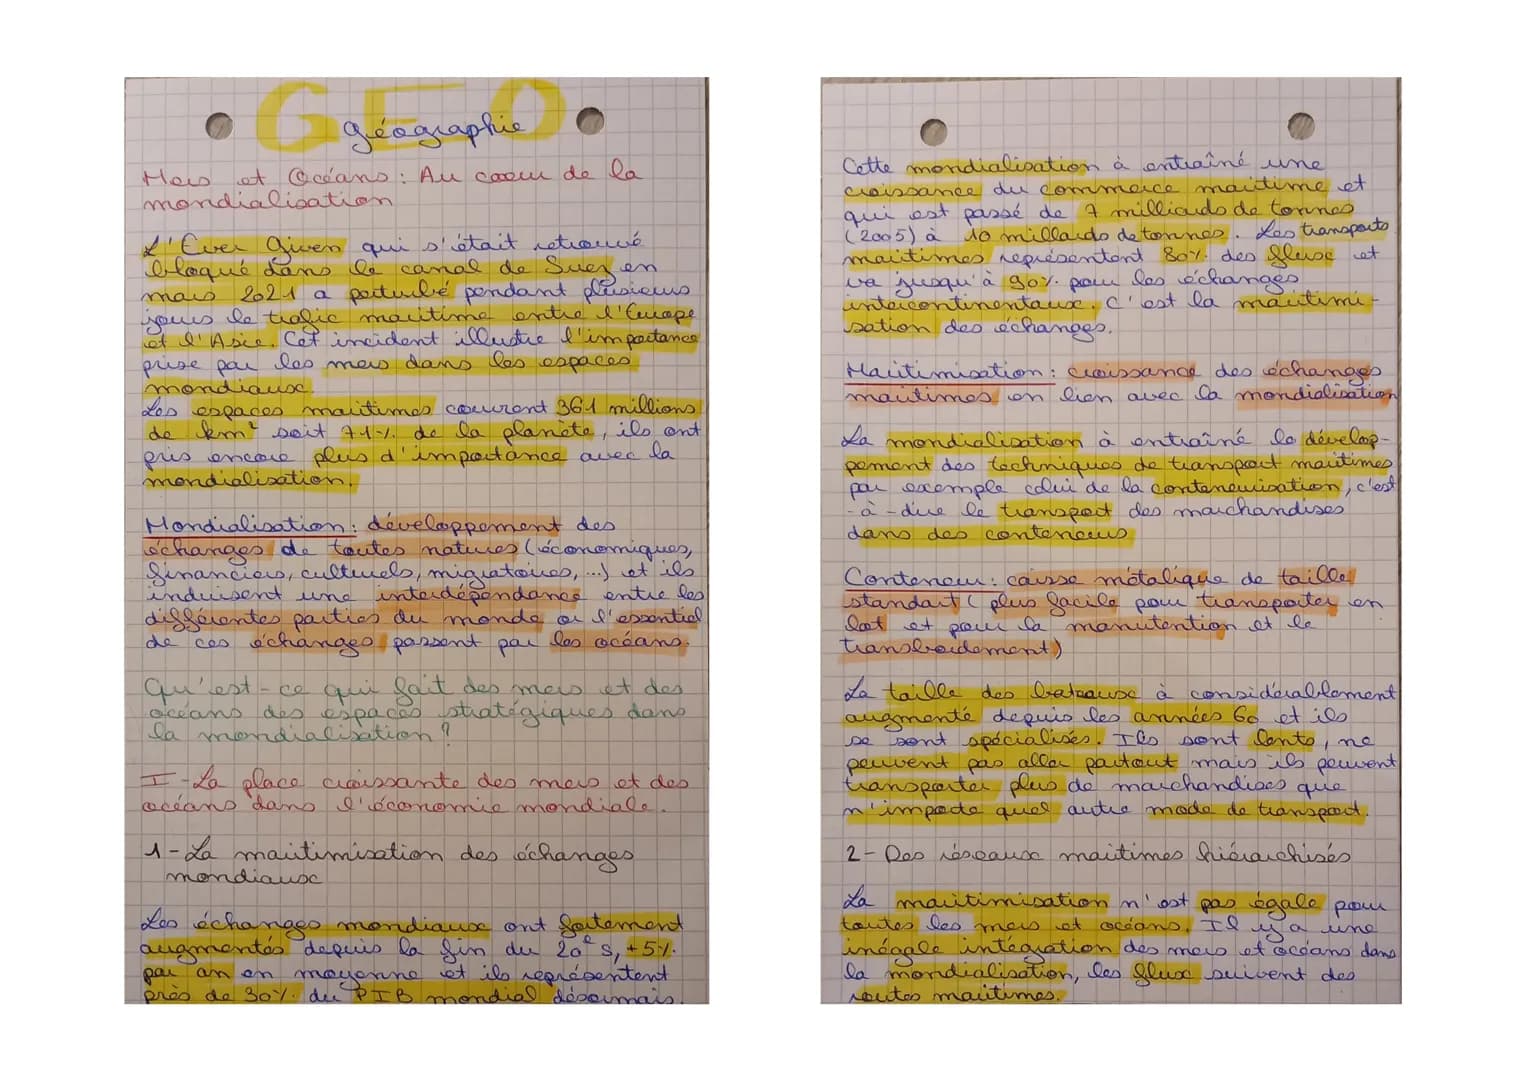 GEO
géographie
Mers et Océans : Au coeur de la
mondialisation
L'Ever Given qui s'était retrouvé
bloqué dans le canal de Suez en
mars 2021 a perturbé pendant plusieurs
jours le trafic maritime entre l'Europe
et l'Asie. Cet incident illustre l'importance
prise par les mers dans les espaces
mondiaux.
Les espaces maritimes couvrent 361 millions
de km² soit 71% de la planète, ils ont
pris encore plus d'importance avec la
mondialisation.
Mondialisation : développement des
échanges de toutes natures (économiques,
financiers, culturels, migratoires, ...) et ils
induisent une interdépendance entre les
différentes parties du monde or l'essentiel
de ces échanges passent par les océans.
Qu'est-ce qui fait des mers et des
océans des espaces stratégiques dans
la mondialisation ?
I - La place croissante des mers et des
océans dans l'économie mondiale.
1 - La maritimisation des échanges
mondiaux
Les échanges mondiaux ont fortement
augmentés depuis la fin du 20e s, +5%
par an en moyenne et ils représentent
près de 30% du PIB mondial désormais.
Cette mondialisation à entraîné une
croissance du commerce maritime et
qui est passé de 7 milliards de tonnes
(2005) à 10 millards de tonnes. Les transports
maritimes représentent 80% des fleux et
va jusqu'à 90% pour les échanges
intercontinentaux, c'est la maritimi-
sation des échanges.
Maritimisation : croissance des échanges
maritimes en lien avec la mondialisation
La mondialisation à entraîné le dévelop-
pement des techniques de transport maritimes
par exemple celui de la conteneurisation, c'est
-à-dire le transport des marchandises
dans des conteneurs
Conteneur : caisse métalique de taille
standart ( plus facile pour transporter en
lot et pour la manutention et le
transbordement)
La taille des bateaux à considérablement
augmenté depuis les années 60 et ils
se sont spécialisés. Ils sont lents, ne
peuvent pas aller partout mais ils peuvent
transporter plus de marchandises que
n'importe quel autre mode de transport.
2 - Des réseaux maritimes hiérarchisés
La maritimisation n'est pas égale pour
toutes les mers et océans. Il y a une
inégale intégration des mers et océans dans
la mondialisation, les flux suivent des
routes maritimes.